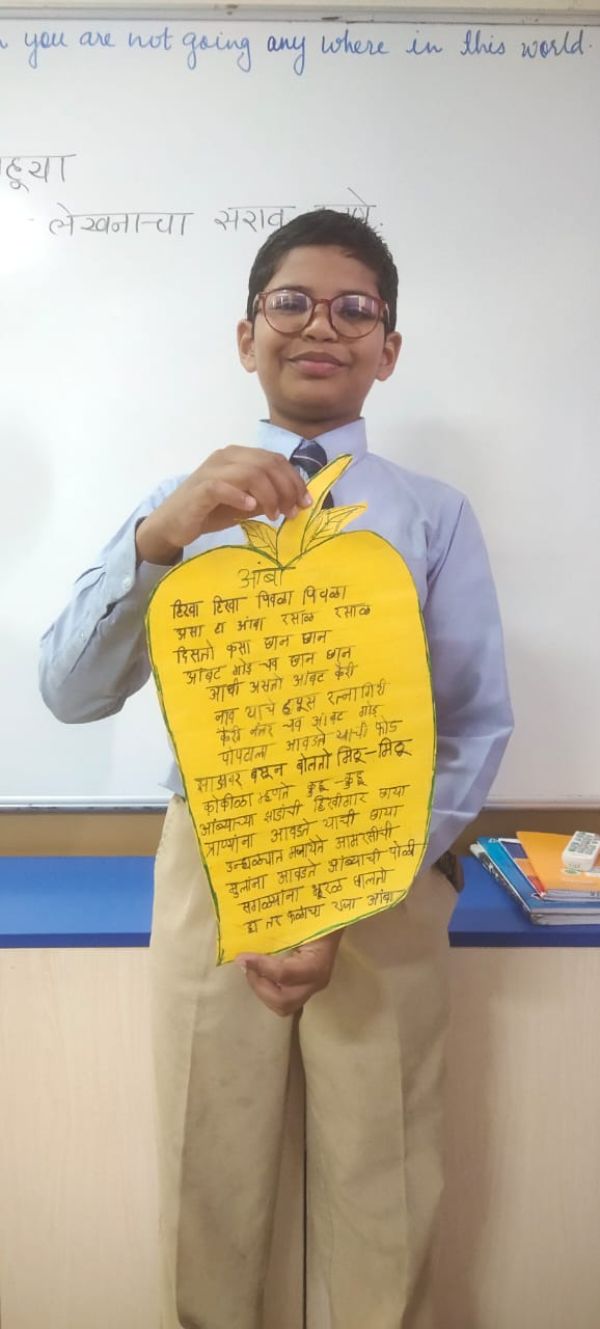 you are not going any where in this world.
हूया
लेखनाचा सराव
आंबा
हिरवा हिरवा पिवळा पिवळा
असा हा आंबा रसाळ रसाळ
दिसतो कसा छान छान
आंबट गोड चव छान छान
आधी असतो आंबट कैरी
नाव याचे हापूस रत्नागिरी
कैरी नंतर चव आंबट गोड
पोपटाला आवडते याची फोड
झाडावर बसून बोलतो मिठू-मिठू
कोकीळा म्हणते कुहू-कुहू
आंब्याच्या झाडांची हिरवीगार छाया
प्राण्यांना आवडते याची छाया
उन्हाळ्यात मजा येते आमरसाची
मुलांना आवडते आंब्याची पोळी
सगळ्यांना भूरळ घालतो
हा तर फळांचा राजा आंबा